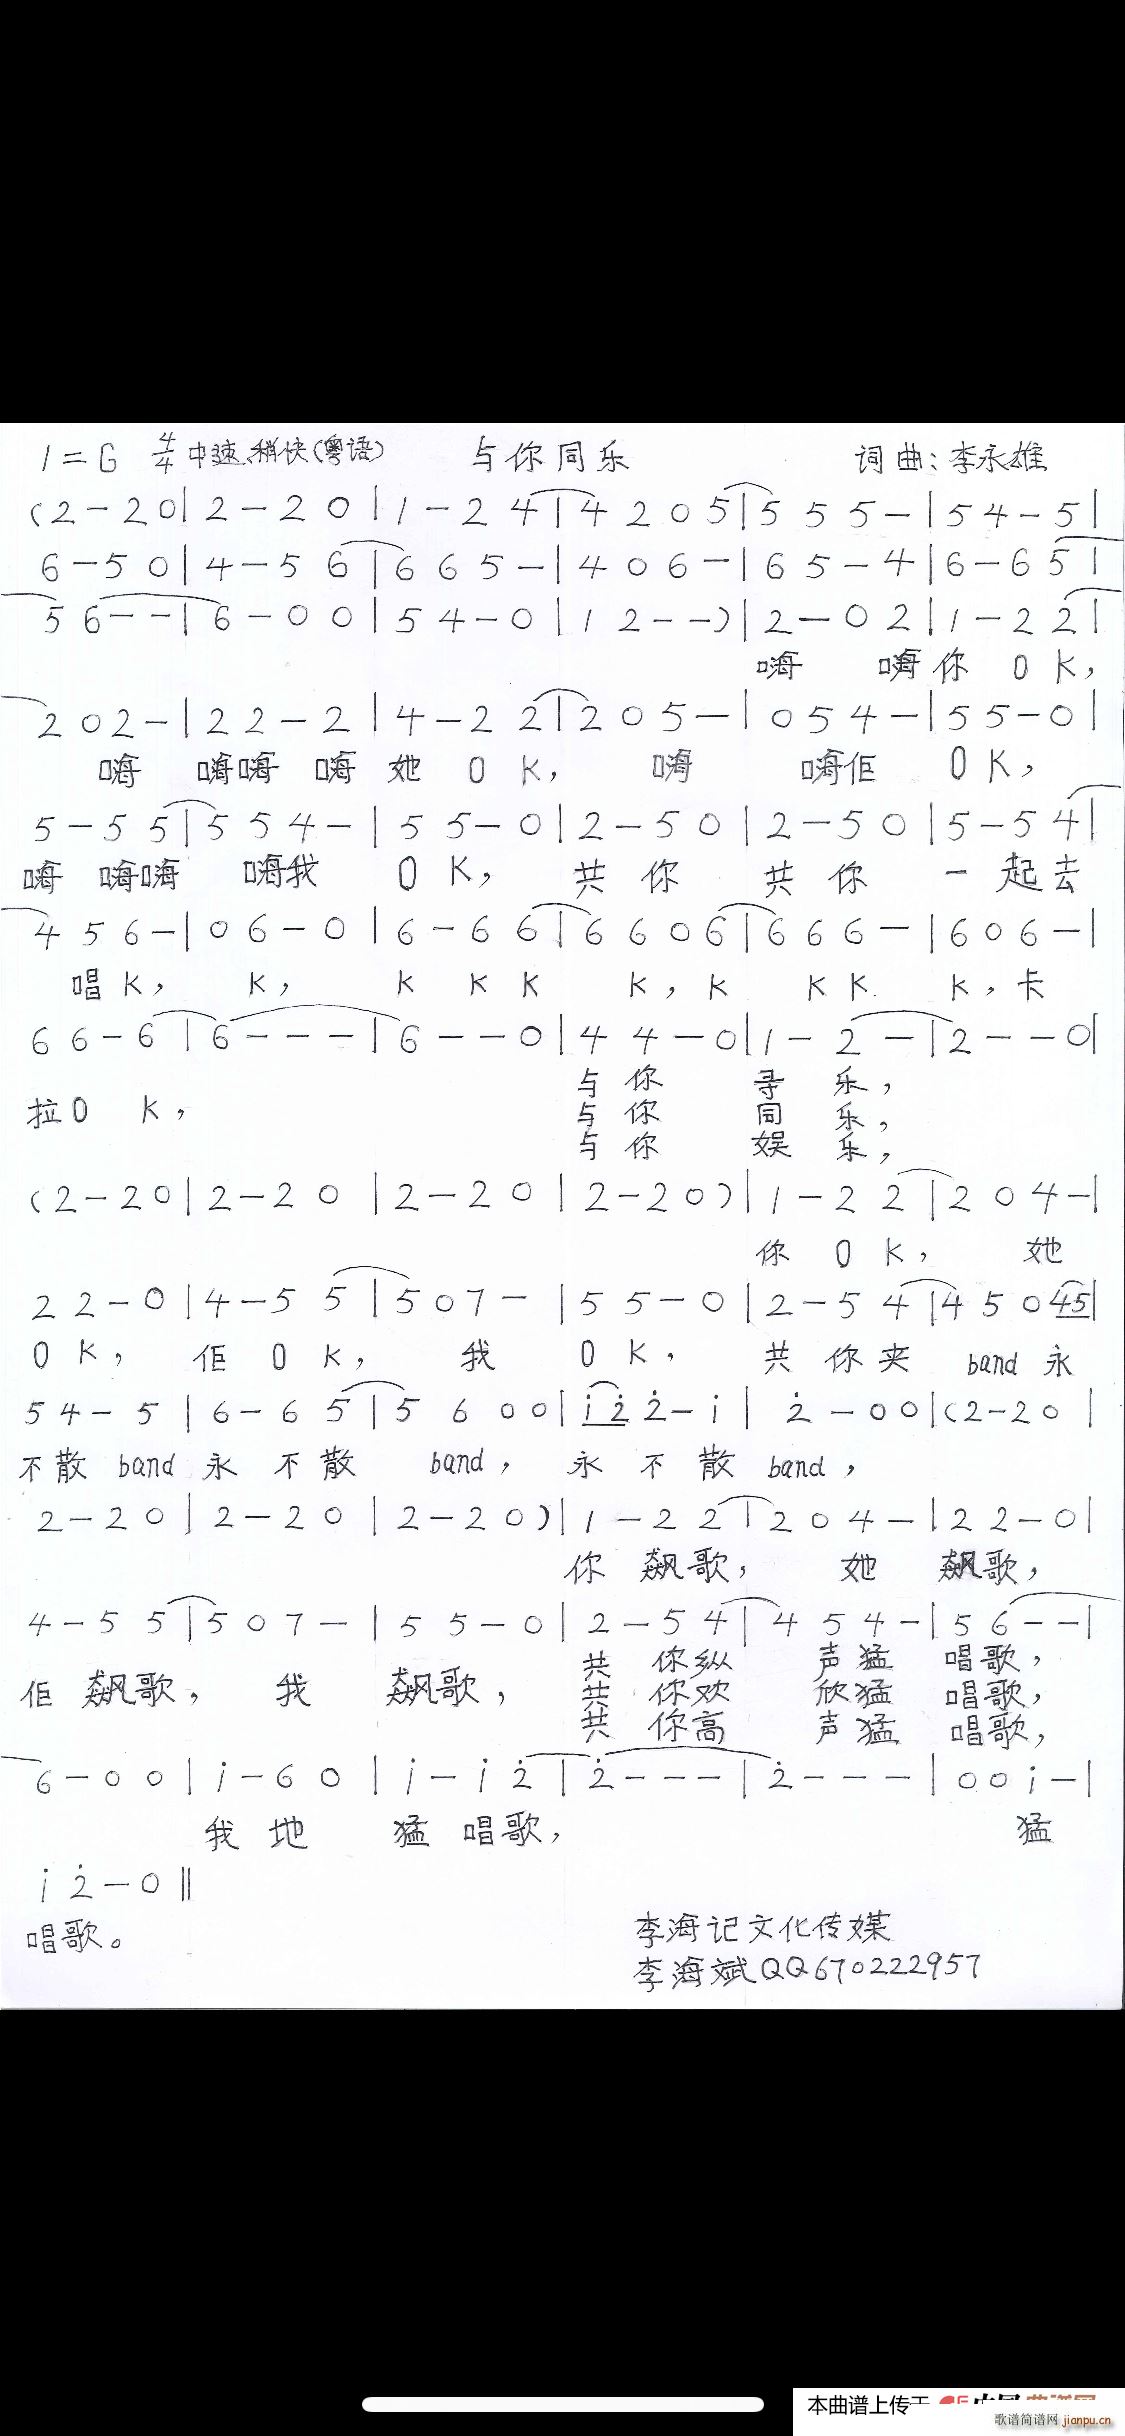 1=G 4/4 中速、稍快(粤语) 与你同乐 词曲:李永雄
(2-20|2-20|1-24|4205|555-|54-5|
6-50|4-56|665-|406-|65-4|6-65|
56--|6-00|54-0|12--)|2-02|1-22|
嗨 嗨你 O K,
202-|22-2|4-22|205-|054-|55-0|
嗨 嗨嗨 嗨 她 O K, 嗨 嗨佢 O K,
5-55|554-|55-0|2-50|2-50|5-54|
嗨 嗨嗨 嗨我 O K, 共 你 共 你 一 起去
456-|06-0|6-66|6606|666-|606-|
唱 K, K, K K K K, K K K K, 卡
66-6|6---|6--0|44-0|1-2-|2--0|
与 你 寻 乐,
拉O K, 与 你 同 乐,
与 你 娱 乐,
(2-20|2-20|2-20|2-20)|1-22|204-|
你 O K, 她
22-0|4-55|507-|55-0|2-54|45045|
O K, 佢 O K, 我 O K, 共 你夹 band 永
54-5|6-65|5600|i̇2̇2̇-i̇|2̇-00|(2-20|
不散 band 永 不 散 band, 永 不 散 band,
2-20|2-20|2-20)|1-22|204-|22-0|
你 飙歌, 她 飙歌,
4-55|507-|55-0|2-54|454-|56--|
共 你纵 声猛 唱歌,
佢 飙歌, 我 飙歌, 共 你欢 欣猛 唱歌,
共 你高 声猛 唱歌,
6-00|i̇-60|i̇-i̇2̇|2̇---|2̇---|00i̇-|
我 地 猛 唱歌, 猛
i̇2̇-0‖
唱歌。
李海记文化传媒
李海斌QQ670222957
本曲谱上传于
歌谱简谱网 jianpu.cn